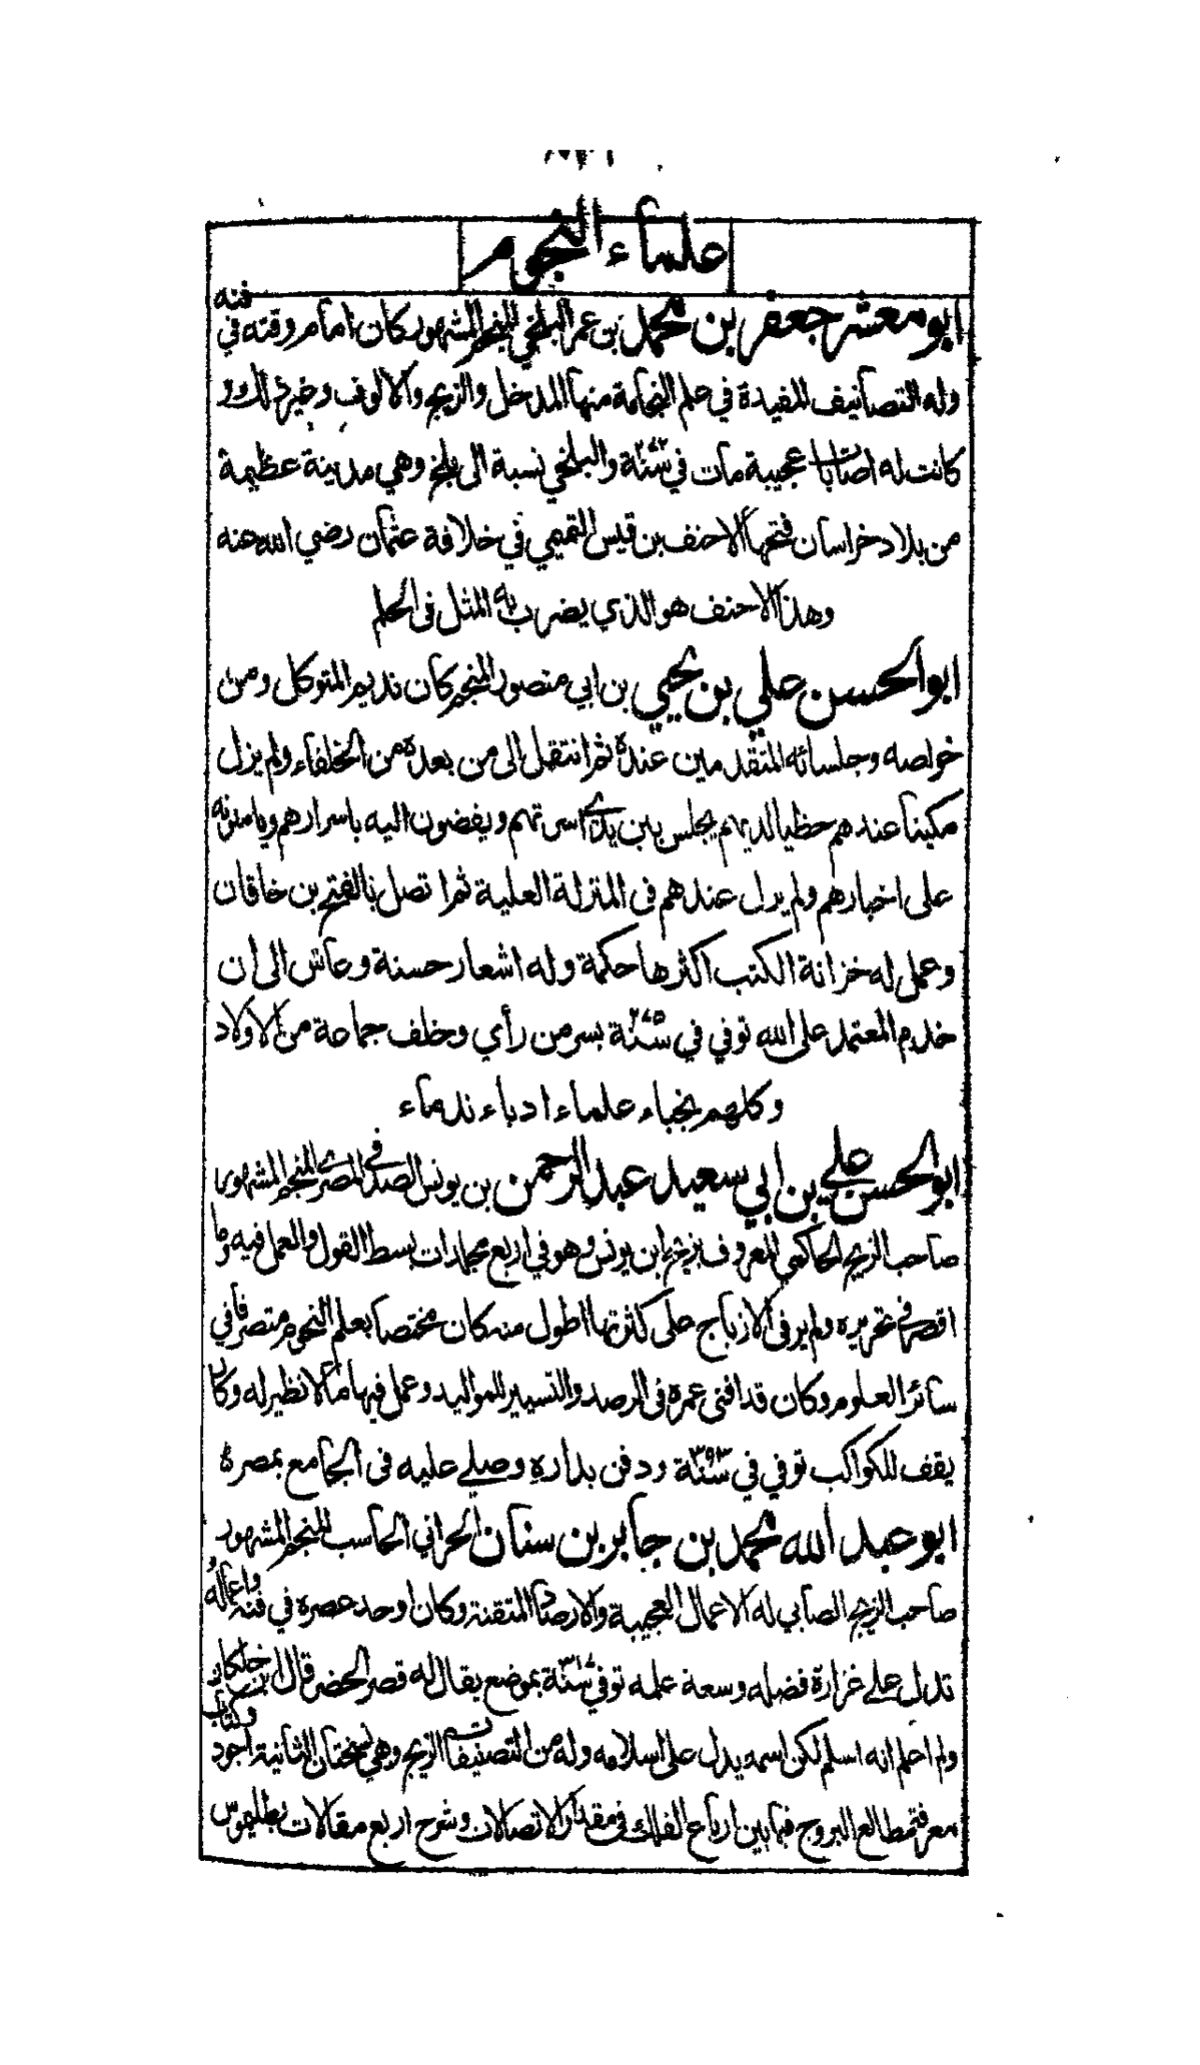 علماء النجوم
ابو معشر جعفر بن محمد بن عمر البلخي المنجم المشهور كان امام وقته في فنه
وله التصانيف المفيدة في علم النجامة منها المدخل والزيج والالوف وغير ذلك و
كانت له اصابات عجيبة مات في سنة ٢٧٢ والبلخي نسبة الى بلخ وهي مدينة عظيمة
من بلاد خراسان فتحها الاحنف بن قيس التميمي في خلافة عثمان رضي الله عنه
وهذا الاحنف هو الذي يضرب به المثل فى الحلم
ابو الحسن علي بن يحيى بن ابي منصور المنجم كان نديم المتوكل ومن
خواصه وجلسائه المتقدمين عنده ثم انتقل الى من بعده من الخلفاء ولم يزل
مكينا عندهم حظيا لديهم يجلس بين يدي اسرتهم ويفضون اليه باسرارهم ويامنونه
على اخبارهم ولم يزل عندهم فى المنزلة العلية ثم اتصل بالفتح بن خاقان
وعمل له خزانة الكتب اكثرها حكمة وله اشعار حسنة وعاش الى ان
خدم المعتمد على الله توفي في سنة ٢٧٥ بسر من رأي وخلف جماعة من الاولاد
وكلهم نجباء علماء ادباء ندماء
ابو الحسن علي بن ابي سعيد عبد الرحمن بن يونس الصدفي المصري المنجم المشهور
صاحب الزيج الحاكمي المعروف بزيج ابن يونس وهو في اربع مجلدات بسط القول والعمل فيه وما
اقصر في تحريره ولم ير فى الازياج على كثرتها اطول منه كان مختصا بعلم النجوم متصرفا في
سائر العلوم وكان قد افنى عمره فى الرصد والتسيير للمواليد وعمل فيها ما لا نظير له وكان
يقف للكواكب توفي في سنة ٣٩٣ ودفن بداره وصلي عليه فى الجامع بمصر
ابو عبد الله محمد بن جابر بن سنان الحراني الحاسب المنجم المشهور
صاحب الزيج الصابي له الاعمال العجيبة والارصاد المتقنة وكان اوحد عصره في فنه واعماله
تدل علي غزارة فضله وسعة علمه توفي سنة ٣١٧ بموضع يقال له قصر الحضر قال ابن خلكان
ولم اعلم انه اسلم لكن اسمه يدل على اسلامه وله من التصنيفات الزيج وهي نسختان الثانية اجود وكتاب
معرفة مطالع البروج فيما بين ارباع الفلك فى مقدار الاتصالات وشرح اربع مقالات بطلميوس